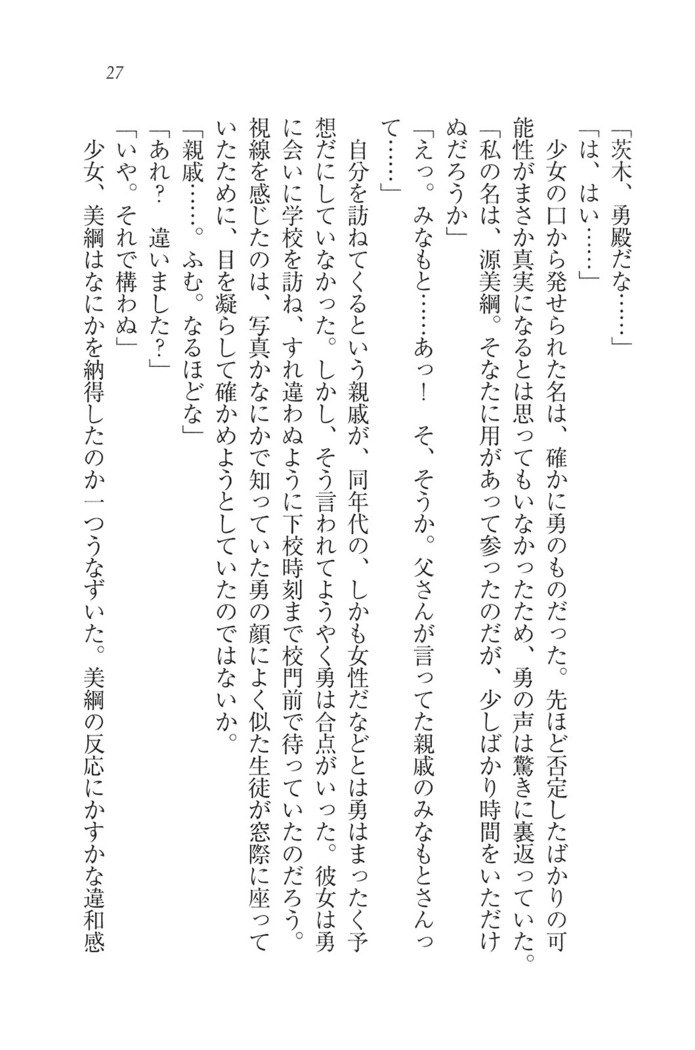 27
「茨木、勇殿だな……」
「は、はい……」
　少女の口から発せられた名は、確かに勇のものだった。先ほど否定したばかりの可
能性がまさか真実になるとは思ってもいなかったため、勇の声は驚きに裏返っていた。
「私の名は、源美綱。そなたに用があって参ったのだが、少しばかり時間をいただけ
ぬだろうか」
「えっ。みなもと……あっ！　そ、そうか。父さんが言ってた親戚のみなもとさんっ
て……」
　自分を訪ねてくるという親戚が、同年代の、しかも女性だなどとは勇はまったく予
想だにしていなかった。しかし、そう言われてようやく勇は合点がいった。彼女は勇
に会いに学校を訪ね、すれ違わぬように下校時刻まで校門前で待っていたのだろう。
視線を感じたのは、写真かなにかで知っていた勇の顔によく似た生徒が窓際に座って
いたために、目を凝らして確かめようとしていたのではないか。
「親戚……。ふむ。なるほどな」
「あれ？　違いました？」
「いや。それで構わぬ」
　少女、美綱はなにかを納得したのか一つうなずいた。美綱の反応にかすかな違和感